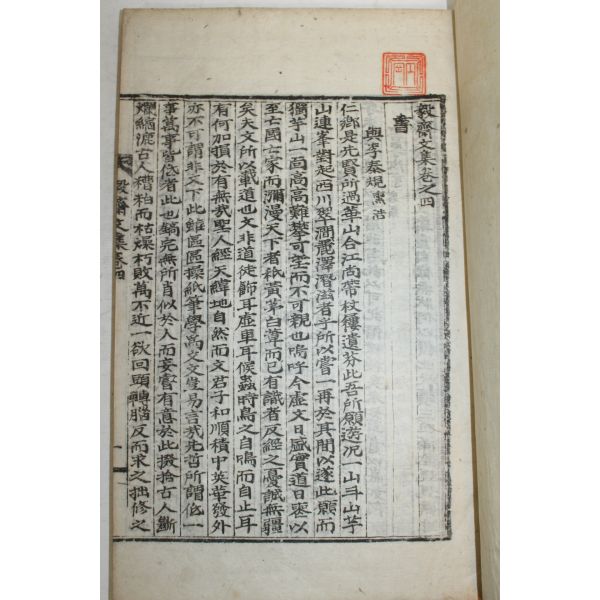 毅齋文集卷之四
書
與李泰規憲浩
仁鄉是先賢所過華山合江尚帶杖屨遺芬此吾所願遊况一山斗山芋
山連峯對起西川翠澗麗澤潛滋者乎所以嘗一再於其間以遂此願而
獨芋山一面高高難攀可望而不可親也嗚呼今虛文日盛實道日喪以
至亡國亡家而瀰漫天下者秖黃茅白葦而已有識者反經之憂誠無疆
矣夫文所以載道也文非道徒飾耳虛車耳候蟲時鳥之自鳴而自止耳
有何加損於有無哉聖人經天緯地自然而文君子和順積中英華發外
亦不可謂非文下此雖區區操紙筆學爲文文豈易言哉先哲所謂低一
事萬事皆低者此也鏞完無所肖似於人而妄嘗有意於此掇拾古人斷
爛編漉古人糟粕而枯燥朽敗萬不近一欲回頭轉腦反而求之拙修之
毅齋文集卷四
一